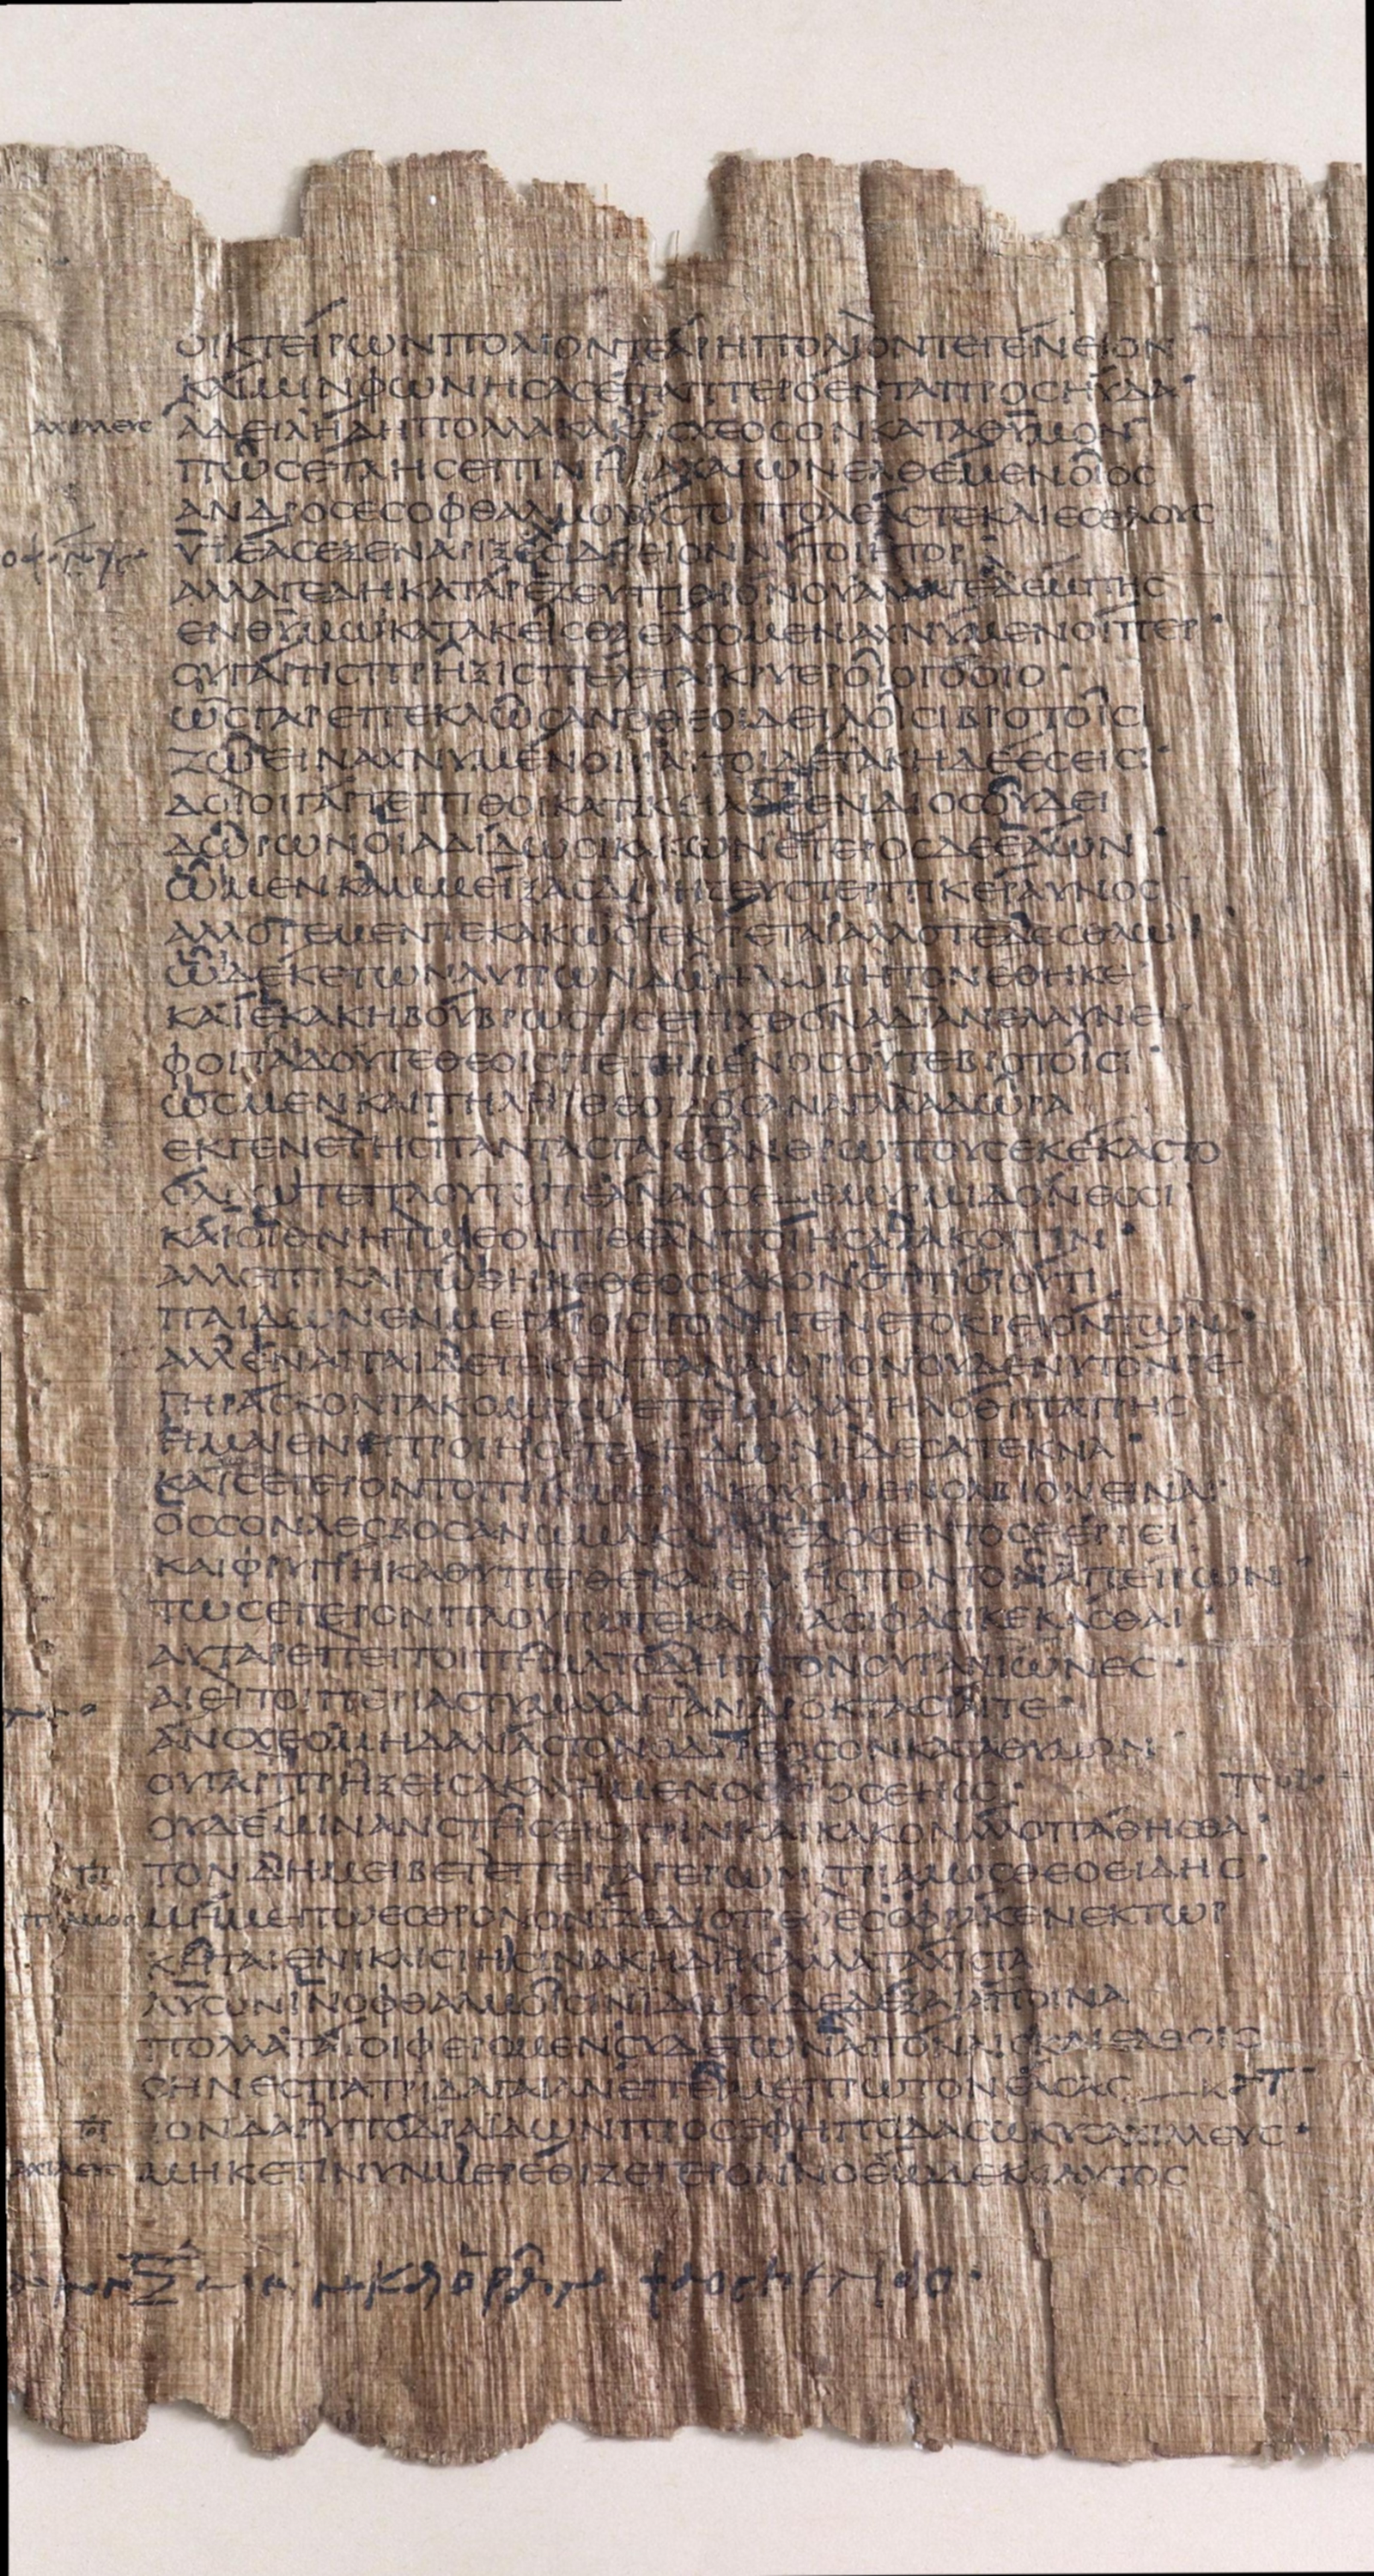 ΟΙΚΤΕΙΡΩΝΠΟΛΙΟΝΤΕΚΑΡΗΠΟΛΙΟΝΤΕΓΕΝΕΙΟΝ
ΚΑΙΜΙΝΦΩΝΗϹΑϹΕΠΕΑΠΤΕΡΟΕΝΤΑΠΡΟϹΗΥΔΑ
ΑΧΙΛΛΕΥϹ ΑΔΕΙΛΗΔΗΠΟΛΛΑΚΑΚΑϹΧΕΟϹΟΝΚΑΤΑΘΥΜΟΝ
ΠΩϹΕΤΛΗϹΕΠΙΝΗΑϹΑΧΑΙΩΝΕΛΘΕΜΕΝΟΙΟϹ
ΑΝΔΡΟϹΕϹΟΦΘΑΛΜΟΥϹΟϹΤΟΙΠΟΛΕΑϹΤΕΚΑΙΕϹΘΛΟΥϹ
ΥΙΕΑϹΕΞΕΝΑΡΙΞΕϹΙΔΗΡΕΙΟΝΝΥΤΟΙΗΤΟΡ
ΑΛΛΑΓΕΔΗΚΑΤΑΡΕΖΕΥΕΠΙΘΡΟΝΟΥΑΛΓΕΑΔΕΜΠΗϹ
ΕΝΘΥΜΩΙΚΑΤΑΚΕΙϹΘΑΙΕΑϹΟΜΕΝΑΧΝΥΜΕΝΟΙΠΕΡ
ΟΥΓΑΡΤΙϹΠΡΗΞΙϹΠΕΛΕΤΑΙΚΡΥΕΡΟΙΟΓΟΟΙΟ
ΩϹΓΑΡΕΠΕΚΛΩϹΑΝΤΟΘΕΟΙΔΕΙΛΟΙϹΙΒΡΟΤΟΙϹΙ
ΖΩΕΙΝΑΧΝΥΜΕΝΟΙϹΑΥΤΟΙΔΕΤΑΚΗΔΕΕϹΕΙϹΙ
ΔΟΙΟΙΓΑΡΤΕΠΙΘΟΙΚΑΤΑΚΕΙΑΤΑΙΕΝΔΙΟϹΟΥΔΕΙ
ΔΩΡΩΝΟΙΑΔΙΔΩϹΙΚΑΚΩΝΕΤΕΡΟϹΔΕΕΑΩΝ
ΩΜΕΝΚΑΜΜΕΙΞΑϹΔΩΗΖΕΥϹΤΕΡΠΙΚΕΡΑΥΝΟϹ
ΑΛΛΟΤΕΜΕΝΤΕΚΑΚΩΟΓΕΚΥΡΕΤΑΙΑΛΛΟΤΕΔΕϹΘΛΩ
ΩΔΕΚΕΤΩΝΛΥΓΡΩΝΔΩΗΛΩΒΗΤΟΝΕΘΗΚΕ
ΚΑΙΕΚΑΚΗΒΟΥΒΡΩϹΤΙϹΕΠΙΧΘΟΝΑΔΙΑΝΕΛΑΥΝΕΙ
ΦΟΙΤΑΔΟΥΤΕΘΕΟΙϹΙΤΕΤΙΜΕΝΟϹΟΥΤΕΒΡΟΤΟΙϹΙ
ΩϹΜΕΝΚΑΙΠΗΛΗΙΘΕΟΙΔΟϹΑΝΑΓΛΑΑΔΩΡΑ
ΕΚΓΕΝΕΤΗϹΠΑΝΤΑϹΓΑΡΕΠΑΝΘΡΩΠΟΥϹΕΚΕΚΑϹΤΟ
ΟΛΒΩΤΕΠΛΟΥΤΩΤΕΑΝΑϹϹΕΔΕΜΥΡΜΙΔΟΝΕϹϹΙ
ΚΑΙΟΙΘΝΗΤΩΕΟΝΤΙΘΕΑΝΠΟΙΗϹΑΝΑΚΟΙΤΙΝ
ΑΛΛΕΠΙΚΑΙΤΩΘΗΚΕΘΕΟϹΚΑΚΟΝΟΤΤΙΟΙΟΥΤΙ
ΠΑΙΔΩΝΕΝΜΕΓΑΡΟΙϹΙΓΟΝΗΓΕΝΕΤΟΚΡΕΙΟΝΤΩΝ
ΑΛΛΕΝΑΠΑΙΔΑΤΕΚΕΝΠΑΝΑΩΡΙΟΝΟΥΔΕΝΥΤΟΝΓΕ
ΓΗΡΑϹΚΟΝΤΑΚΟΜΙΖΩΕΠΕΙΜΑΛΑΤΗΛΟΘΙΠΑΤΡΗϹ
ΗΜΑΙΕΝΙΤΡΟΙΗϹΕΤΕΚΗΔΩΝΗΔΕϹΑΤΕΚΝΑ
ΚΑΙϹΕΓΕΡΟΝΤΟΠΡΙΝΜΕΝΑΚΟΥΟΜΕΝΟΛΒΙΟΝΕΙΝΑΙ
ΟϹϹΟΝΛΕϹΒΟϹΑΝΩΜΑΚΑΡΟϹΕΔΟϹΕΝΤΟϹΕΕΡΓΕΙ
ΚΑΙΦΡΥΓΙΗΚΑΘΥΠΕΡΘΕΚΑΙΕΛΛΗϹΠΟΝΤΟϹΑΠΕΙΡΩΝ
ΤΩϹΕΓΕΡΟΝΠΛΟΥΤΩΤΕΚΑΙΥΙΑϹΙΦΑϹΙΚΕΚΑϹΘΑΙ
ΑΥΤΑΡΕΠΕΙΤΟΙΠΗΜΑΤΟΔΗΓΑΓΟΝΟΥΡΑΝΙΩΝΕϹ
ΑΙΕΙΤΟΙΠΕΡΙΑϹΤΥΜΑΧΑΙΤΑΝΔΡΟΚΤΑϹΙΑΙΤΕ
ΑΝϹΧΕΟΜΗΔΑΛΙΑϹΤΟΝΟΔΥΡΕΟϹΟΝΚΑΤΑΘΥΜΟΝ
ΟΥΓΑΡΤΙΠΡΗΞΕΙϹΑΚΑΧΗΜΕΝΟϹΥΙΟϹΕΗΟϹ
ΟΥΔΕΜΙΝΑΝϹΤΗϹΕΙϹΠΡΙΝΚΑΙΚΑΚΟΝΑΛΛΟΠΑΘΗϹΘΑ
ΤΟΝΔΗΜΕΙΒΕΤΕΠΕΙΤΑΓΕΡΩΝΠΡΙΑΜΟϹΘΕΟΕΙΔΗϹ
ΠΡΙΑΜΟϹ ΜΗΜΕΠΩΕϹΘΡΟΝΟΝΙΖΕΔΙΟΤΡΕΦΕϹΟΦΡΑΚΕΝΕΚΤΩΡ
ΚΕΙΤΑΙΕΝΙΚΛΙϹΙΗϹΙΝΑΚΗΔΗϹΑΛΛΑΤΑΧΙϹΤΑ
ΛΥϹΟΝΙΝΟΦΘΑΛΜΟΙϹΙΝΙΔΩϹΥΔΕΔΕΞΑΙΑΠΟΙΝΑ
ΠΟΛΛΑΤΑΤΟΙΦΕΡΟΜΕΝϹΥΔΕΤΩΝΑΠΟΝΑΙΟΚΑΙΕΛΘΟΙϹ
ϹΗΝΕϹΠΑΤΡΙΔΑΓΑΙΑΝΕΠΕΙΜΕΠΡΩΤΟΝΕΑϹΑϹ
ΤΟΝΔΑΡΥΠΟΔΡΑΙΔΩΝΠΡΟϹΕΦΗΠΟΔΑϹΩΚΥϹΑΧΙΛΛΕΥϹ
ΑΧΙΛΛΕΥϹ ΜΗΚΕΤΙΝΥΝΜΕΡΕΘΙΖΕΓΕΡΟΝΝΟΕΩΔΕΚΑΙΑΥΤΟϹ